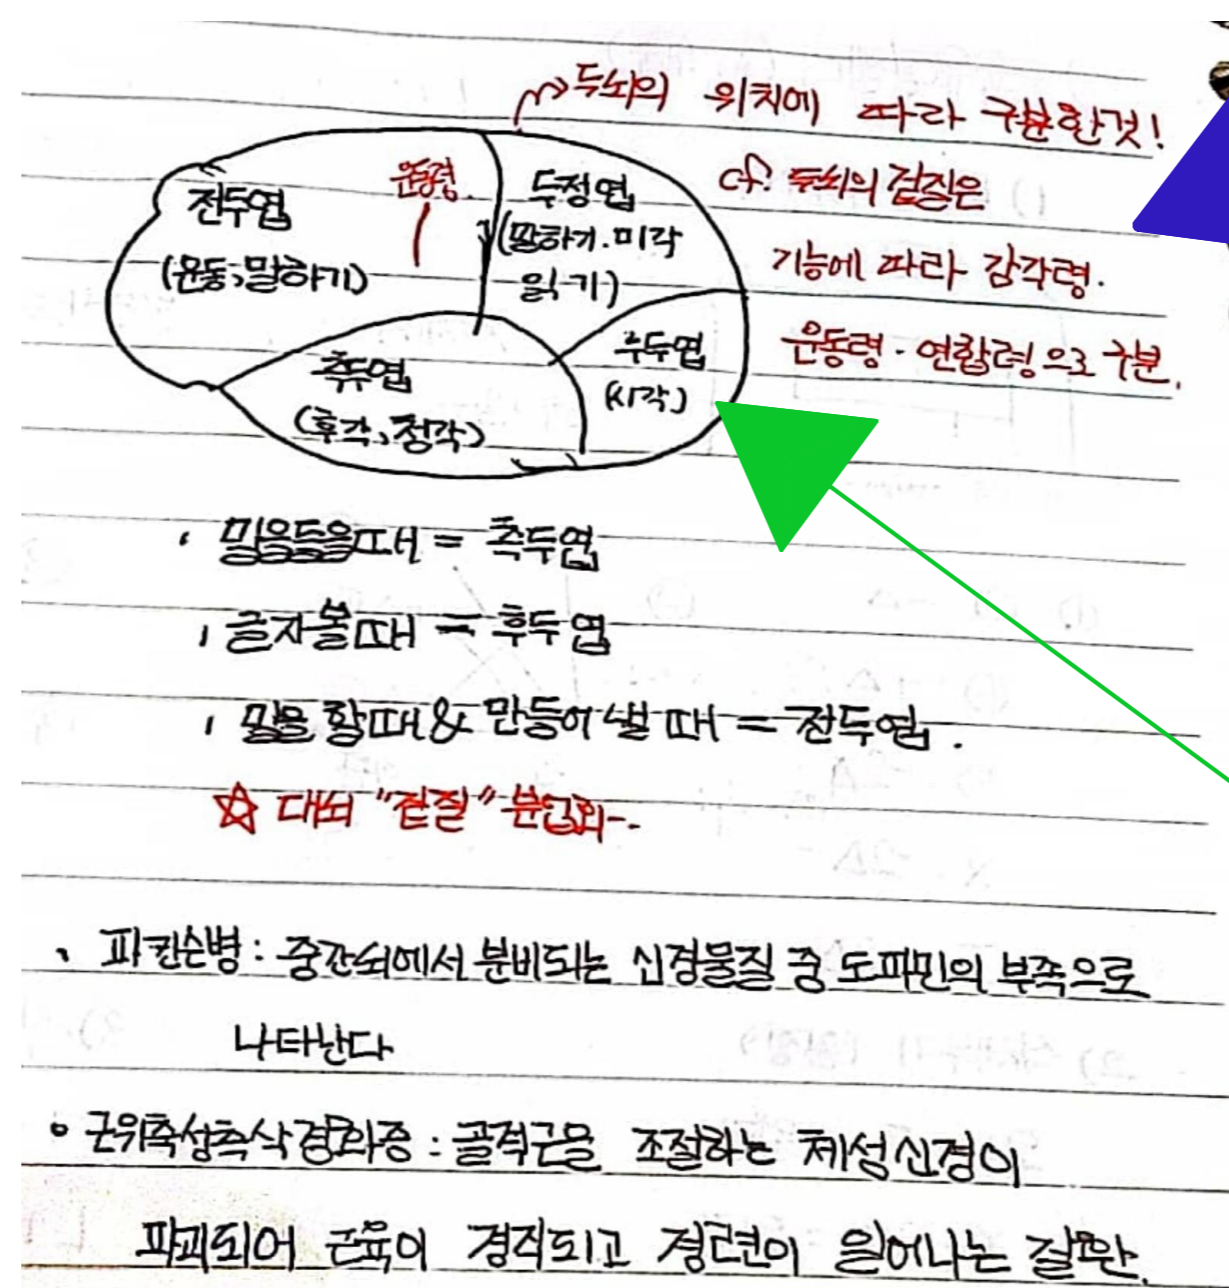 두뇌의 위치에 따라 구분한것!
cf. 두뇌의 겉질은
기능에 따라 감각령.
운동령 · 연합령으로 구분.
전두엽
(운동, 말하기)
운동령
두정엽
(말하기. 미각
읽기)
측두엽
(후각, 청각)
후두엽
(시각)
말을들을때 = 측두엽
글자볼때 = 후두엽
말을 할때 & 만들어 낼 때 = 전두엽.
☆ 대뇌 "겉질" 분업화-.
파킨슨병 : 중간뇌에서 분비되는 신경물질 중 도파민의 부족으로
나타난다
근위축성측삭경화증 : 골격근을 조절하는 체성신경이
파괴되어 근육이 경직되고 경련이 일어나는 질환.